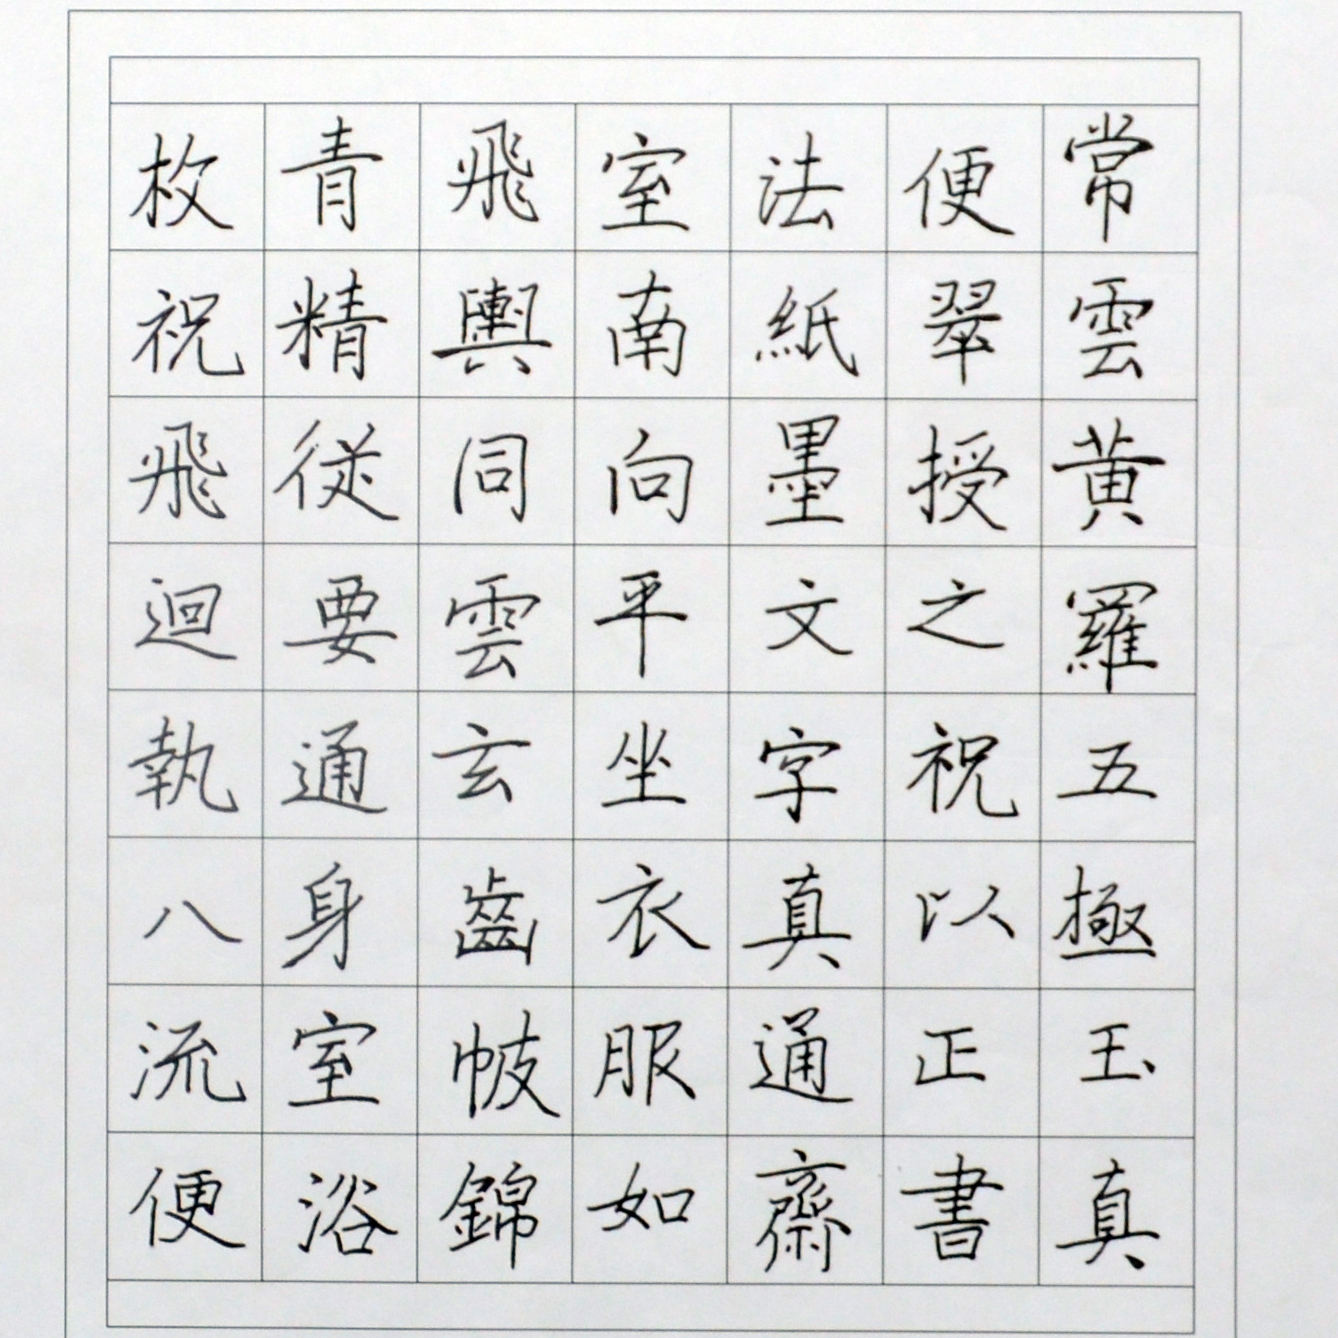 常雲黄羅五極玉真
便翠授之祝以正書
法紙墨文字真通齋
室南向平坐衣服如
飛輿同雲玄齒帔錦
青精従要通身室浴
枚祝飛迴執八流便